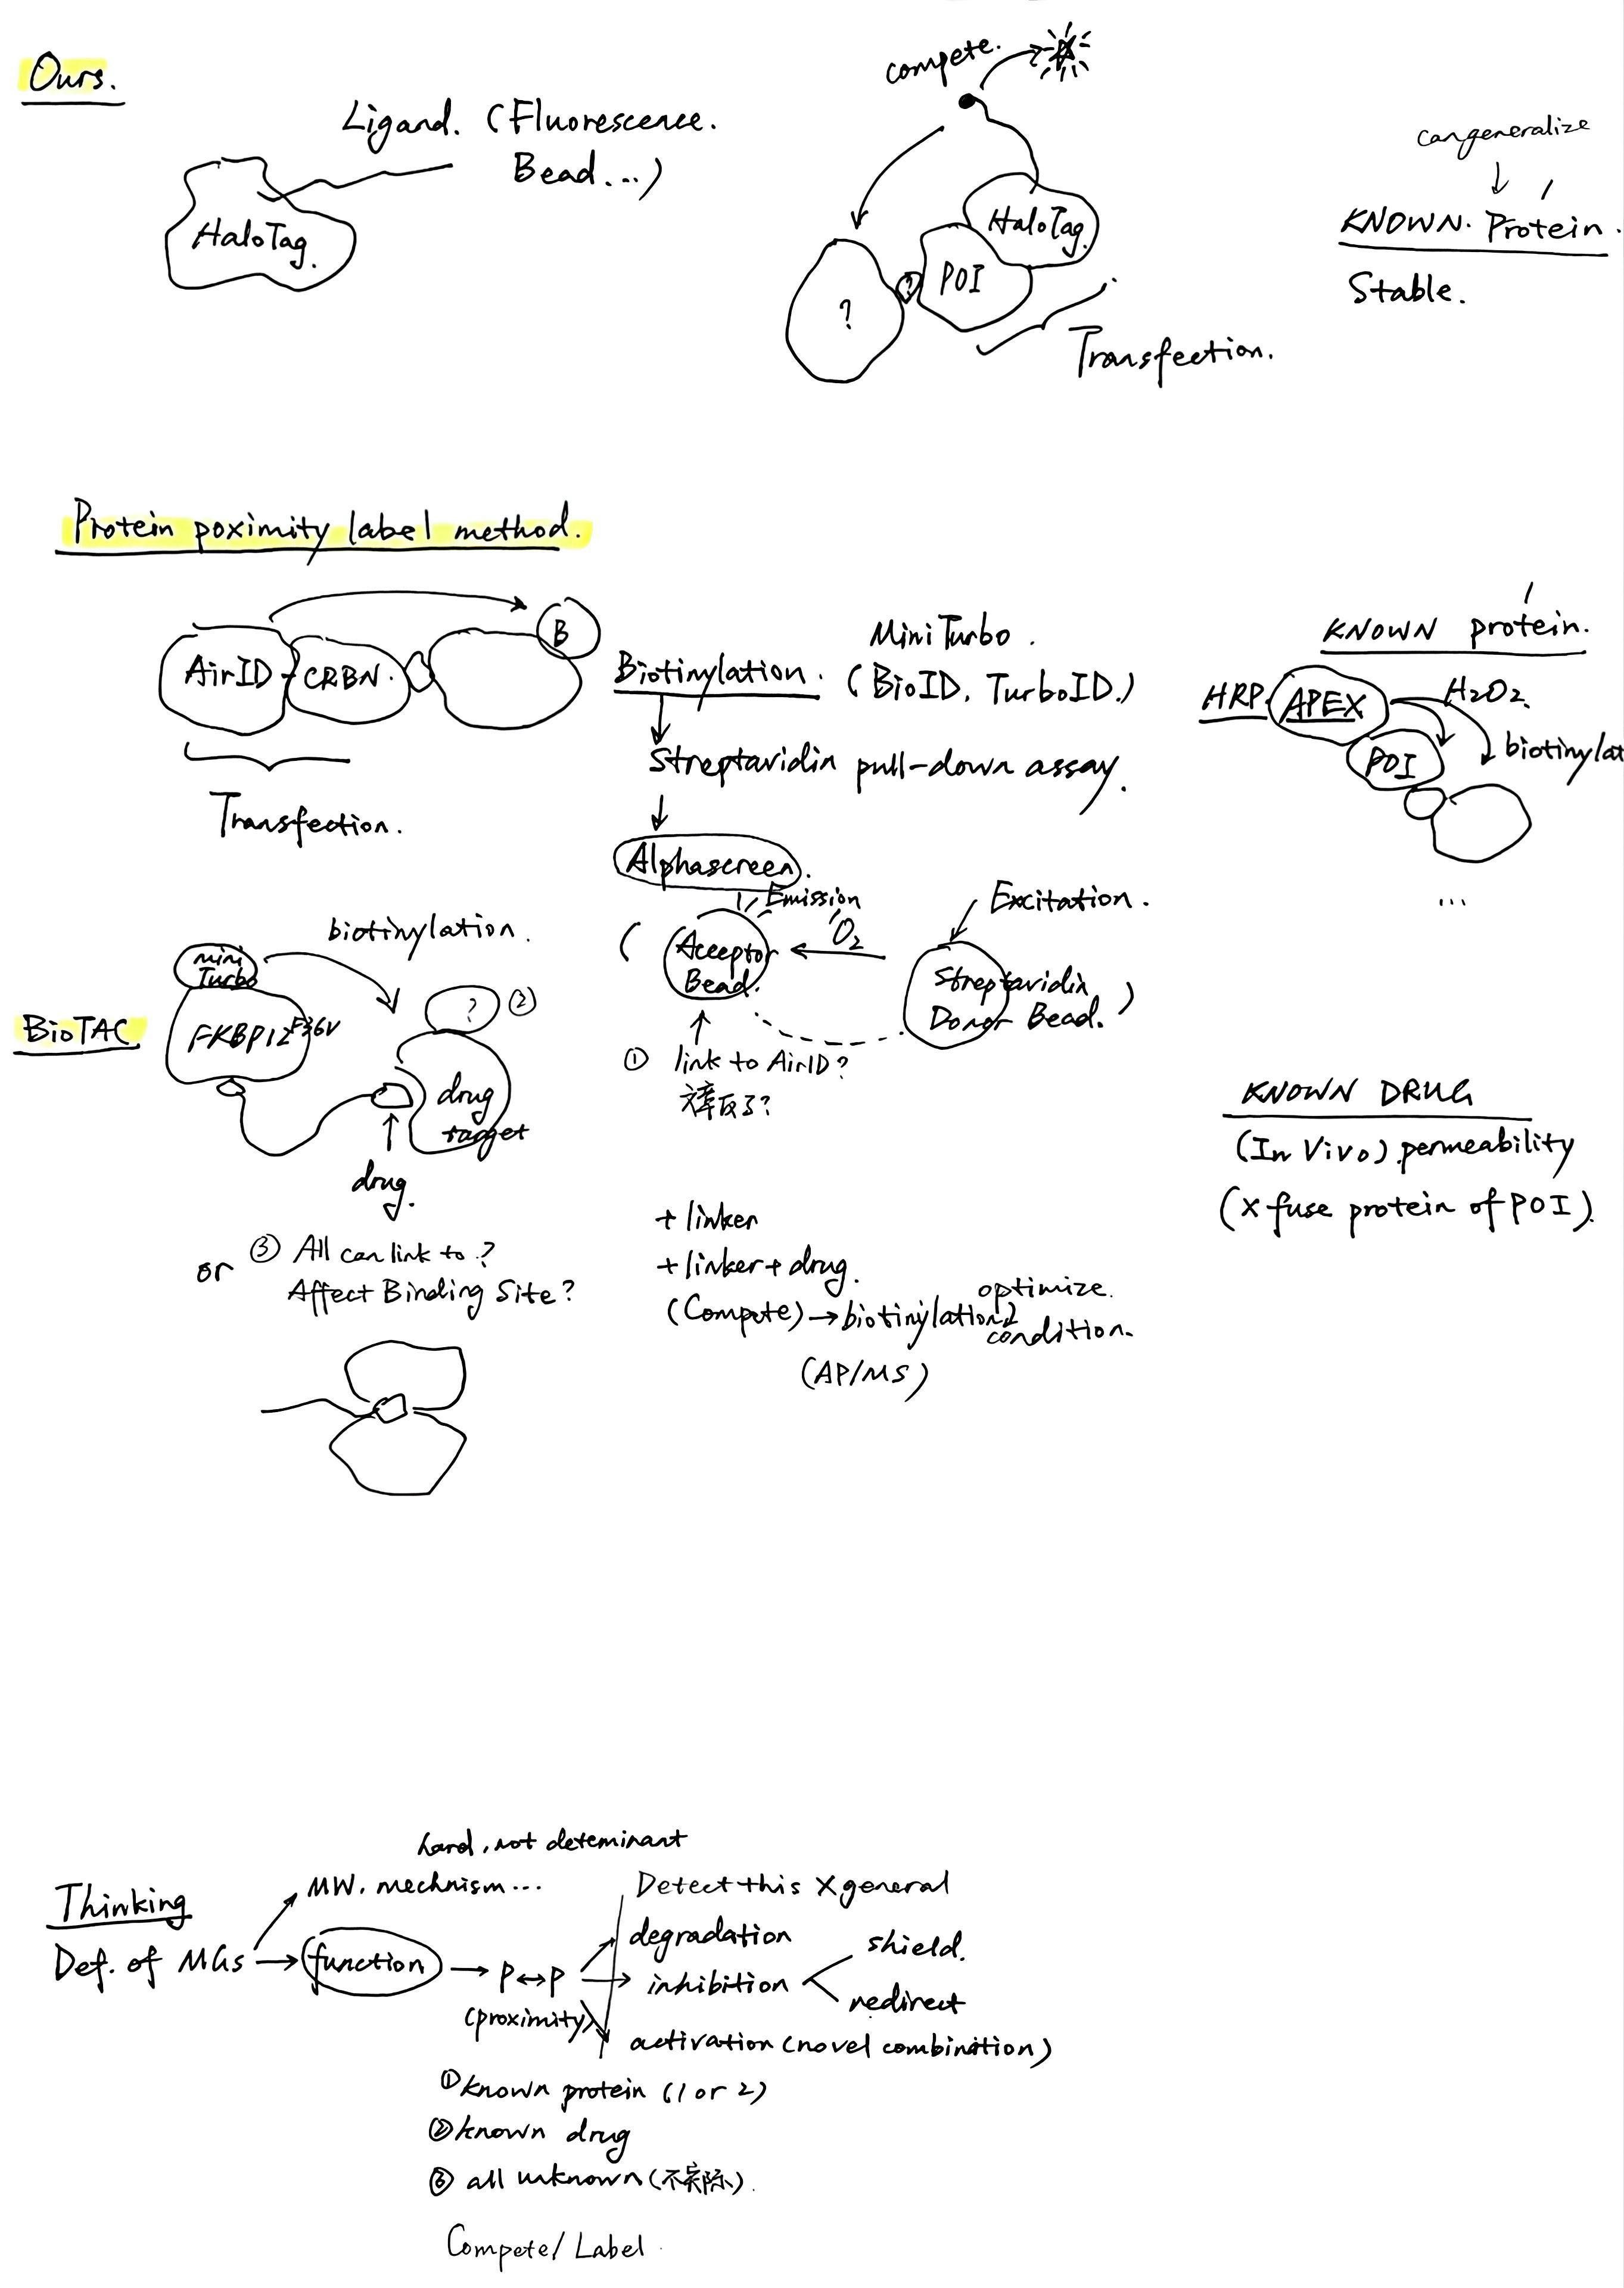 Ours.
Ligand. (Fluorescence.
Bead...)
HaloTag.
compete.
HaloTag.
POI
?
?
Transfection.
can generalize
KNOWN. Protein.
Stable.
Protein poximity label method.
AirID - CRBN.
B
Transfection.
MiniTurbo.
Biotinylation. (BioID. TurboID.)
Streptavidin pull-down assay.
Alphascreen.
Emission
Excitation.
( Acceptor
Bead.
¹O₂
Streptavidin
Donor Bead. )
① link to AirID?
KNOWN protein.
HRP. APEX
H2O2.
POI
biotinylat
...
BioTAC
mini
Turbo
FKBP12 F36V
biotinylation.
? ②
drug
target
drug.
or ③ All can link to?
Affect Binding Site?
+ linker
+ linker + drug.
(Compete) → biotinylation
optimize.
condition.
(AP/MS)
KNOWN DRUG
(In Vivo) permeability
(X fuse protein of POI).
Thinking
hard, not deteminant
MW. mechnism...
Def. of MGs → function → P↔P
(proximity)
Detect this X general
degradation
inhibition
shield.
redirect
activation (novel combination)
① known protein (1 or 2)
② known drug
③ all unknown (不实际).
Compete / Label.